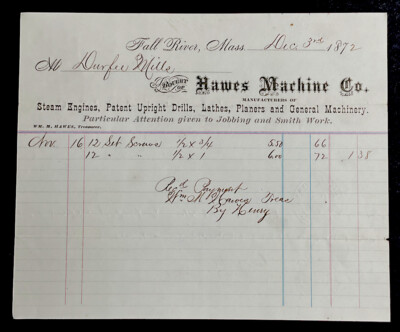 Fall River, Mass Dec 3rd 1872
M Durfee Mills
BOUGHT OF Hawes Machine Co.
MANUFACTURERS OF
Steam Engines, Patent Upright Drills, Lathes, Planers and General Machinery.
Particular Attention given to Jobbing and Smith Work.
WM. M. HAWES, Treasurer.
Nov. 16 12 Set Screws 1/2 x 3/4 5.50 66
12 " " 1/2 x 1 6.00 72 1.38
Rec'd Payment
Wm M Hawes Treas
By Henry